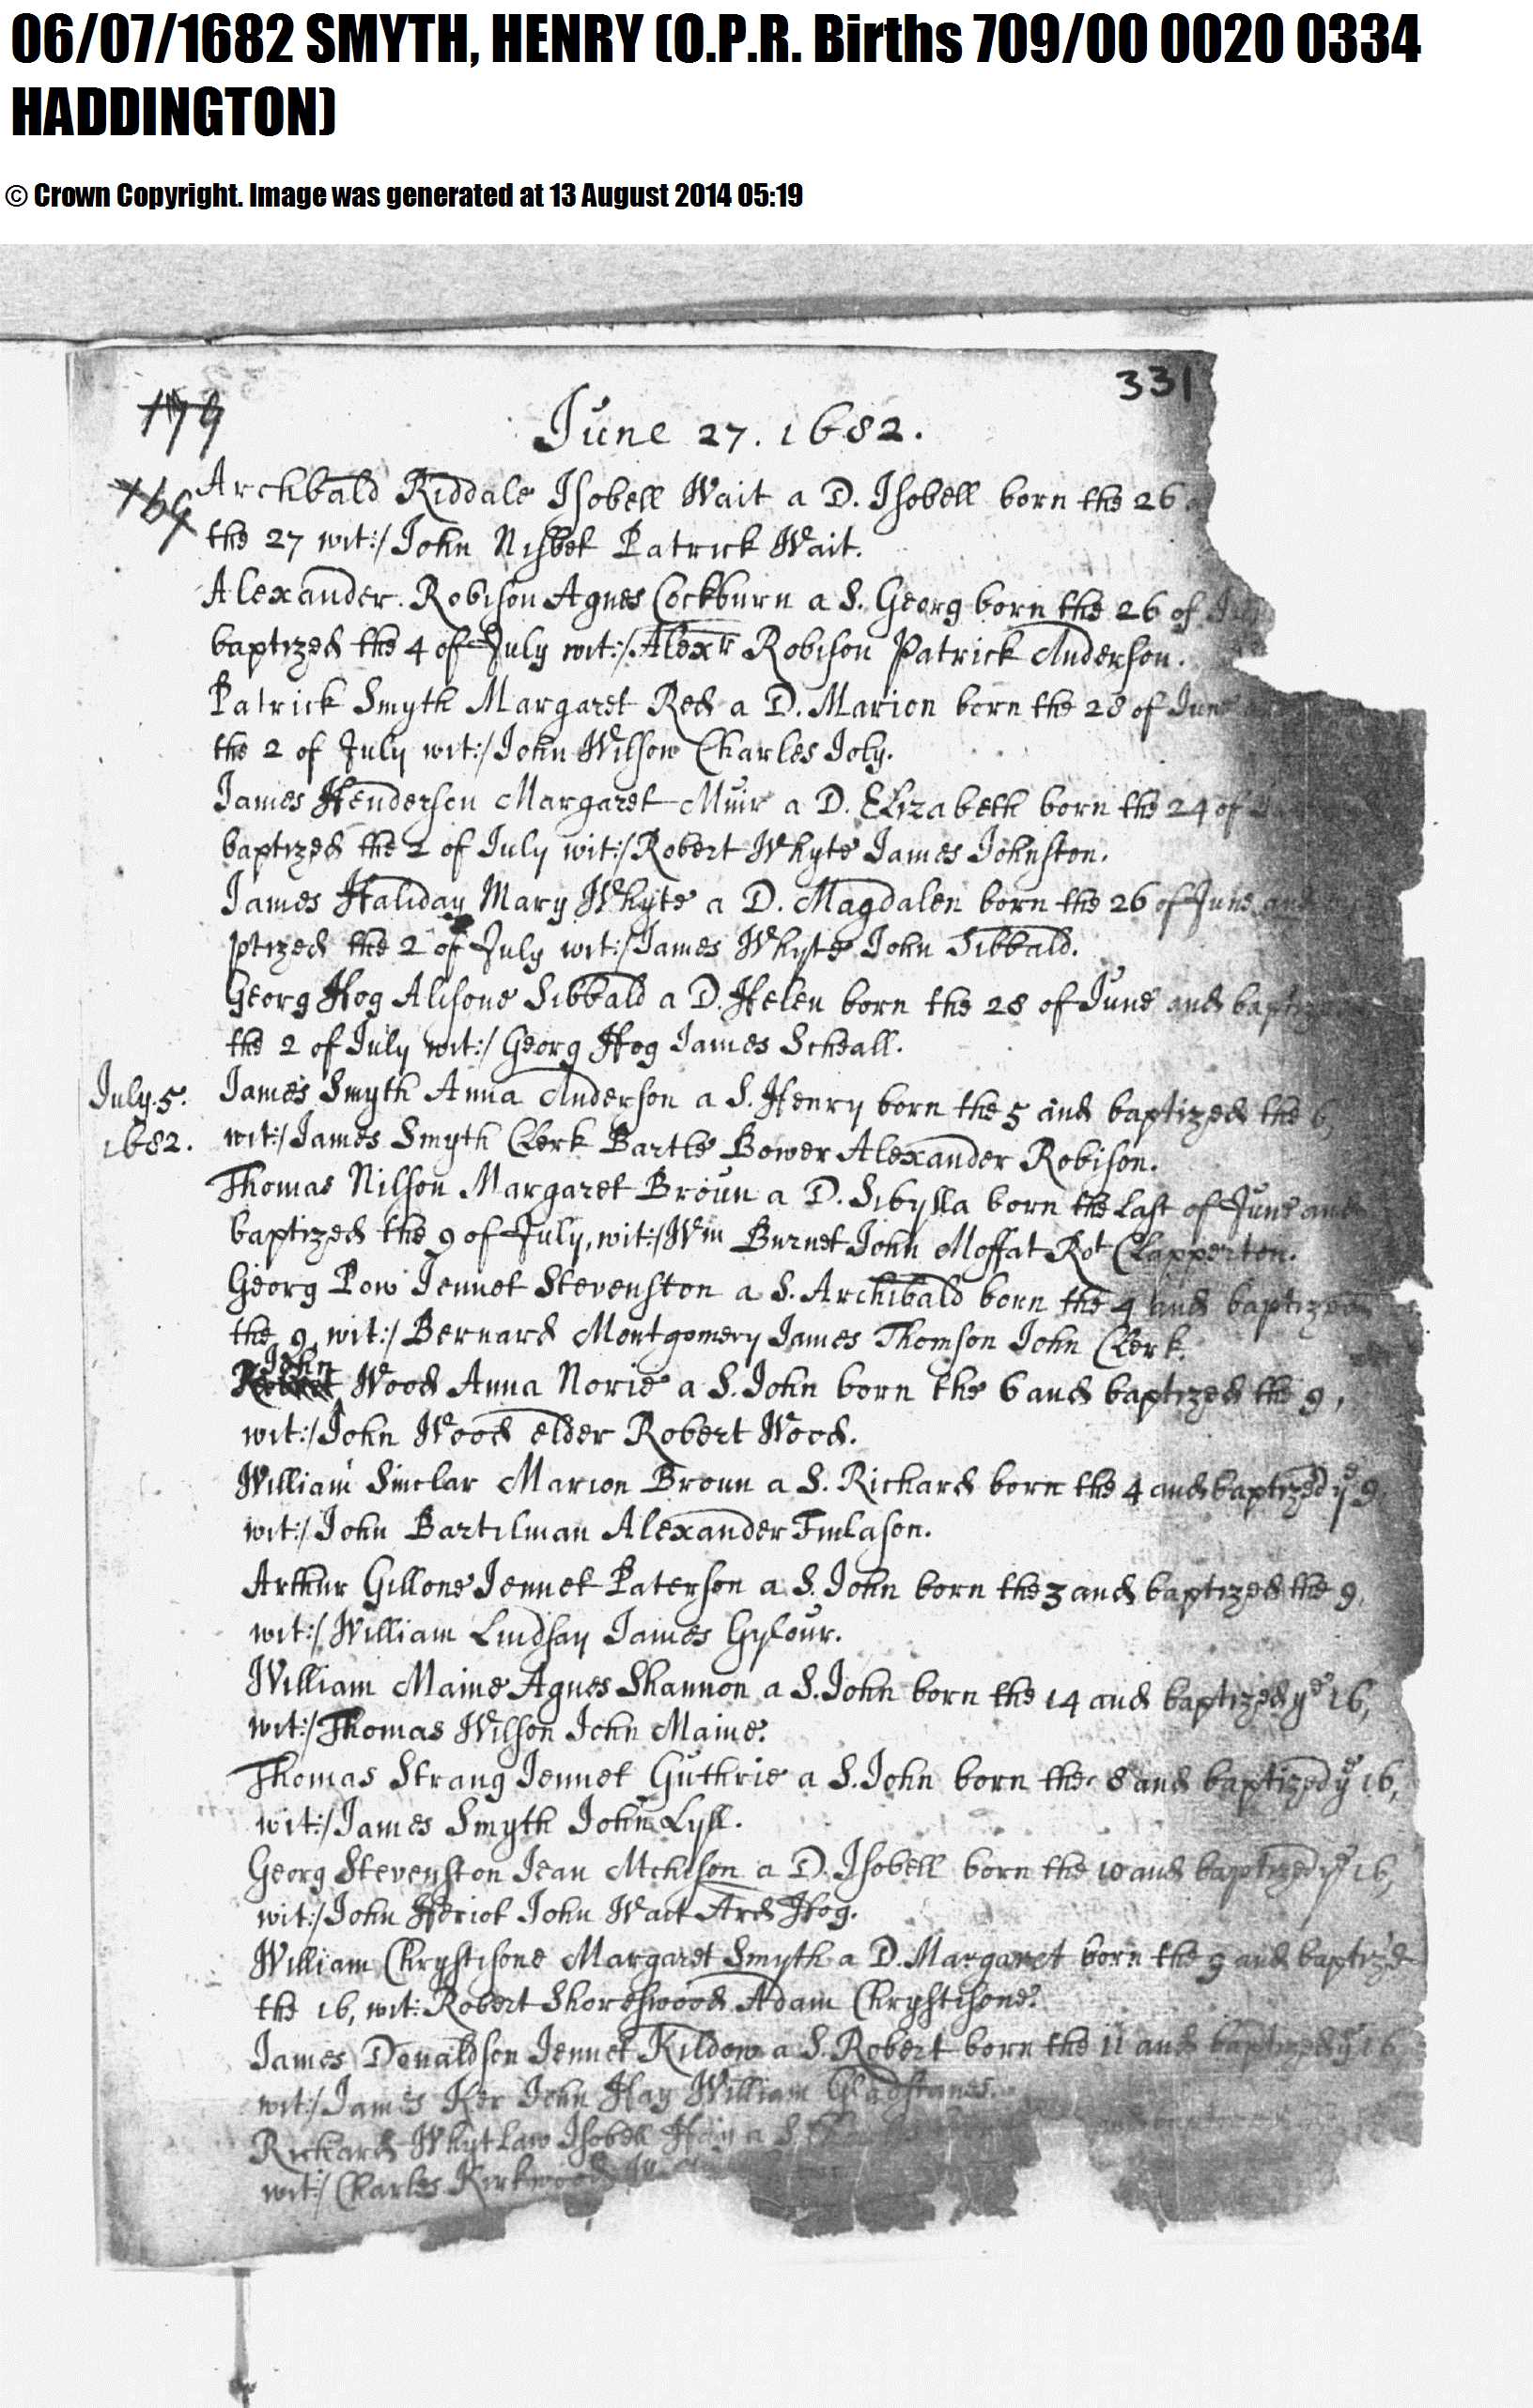 06/07/1682 SMYTH, HENRY (O.P.R. Births 709/00 0020 0334
HADDINGTON)
© Crown Copyright. Image was generated at 13 August 2014 05:19
331
179
June 27. 1682.
169
Archbald Riddale Isobell Wait a D. Isobell born the 26
the 27 wit:/ John Nisbet Patrick Wait.
Alexander. Robison Agnes Cockburn a S. Georg born the 26 of
baptized the 4 of July wit:/ Alexr Robison Patrick Anderson.
Patrick Smyth Margaret Red a D. Marion born the 28 of June
the 2 of July wit:/ John Wilson Charles Joly.
James Henderson Margaret Muir a D. Elizabeth born the 24 of
baptized the 2 of July wit:/ Robert Whyte James Johnston.
James Haliday Mary Whyte a D. Magdalen born the 26 of June and
ptized the 2 of July wit:/ James Whyte John Sibbald.
Georg Hog Alisone Sibbald a D. Helen born the 28 of June and baptized
the 2 of July wit:/ Georg Hog James Scheall.
July.5.
1682.
James Smyth Anna Anderson a S. Henry born the 5 and baptized the 6,
wit:/ James Smyth Clerk Bartle Bower Alexander Robison.
Thomas Nilson Margaret Broun a D. Sibylla born the last of June and
baptized the 9 of July, wit:/ Wm Burnet John Moffat Rot Clapperton.
Georg Pow Jennet Stevenston a S. Archibald born the 4 and baptized
the 9, wit:/ Bernard Montgomery James Thomson John Clerk.
John
Robert Wood Anna Norie a S. John born the 6 and baptized the 9,
wit:/ John Wood elder Robert Wood.
William Sinclar Marion Broun a S. Richard born the 4 and baptized ye 9,
wit:/ John Bartilman Alexander Finlason.
Arthur Gillone Jennet Paterson a S. John born the 3 and baptized the 9,
wit:/ William Lindsay James Gylour.
William Maine Agnes Shannon a S. John born the 14 and baptized ye 16,
wit:/ Thomas Wilson John Maine.
Thomas Strang Jennet Guthrie a S. John born the 8 and baptized ye 16,
wit:/ James Smyth John Lyll.
Georg Stevenston Jean Mchison a D. Isobell born the 10 and baptized ye 16,
wit:/ John Heriot John Wait Ard Hog.
William Chrystisone Margaret Smyth a D. Margaret born the 9 and baptized
the 16, wit: Robert Shoreswood Adam Chrystisone.
James Donaldson Jennet Kildow a S. Robert born the 11 and baptized ye 16
wit:/ James Ker John Hay William Gladstanes.
Richard Whytlaw Isobell Hay a S. and baptized
wit:/ Charles Kirkwood